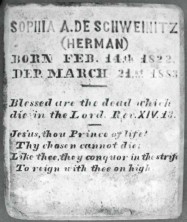 SOPHIA A. DE SCHWEINITZ
(HERMAN)
BORN FEB. 14th 1822.
DEP. MARCH 21st 1883
Blessed are the dead which
die in the Lord. Rev. XIV. 13.
Jesus, thou Prince of life!
Thy chosen cannot die;
Like thee, they conquer in the strife
To reign with thee on high